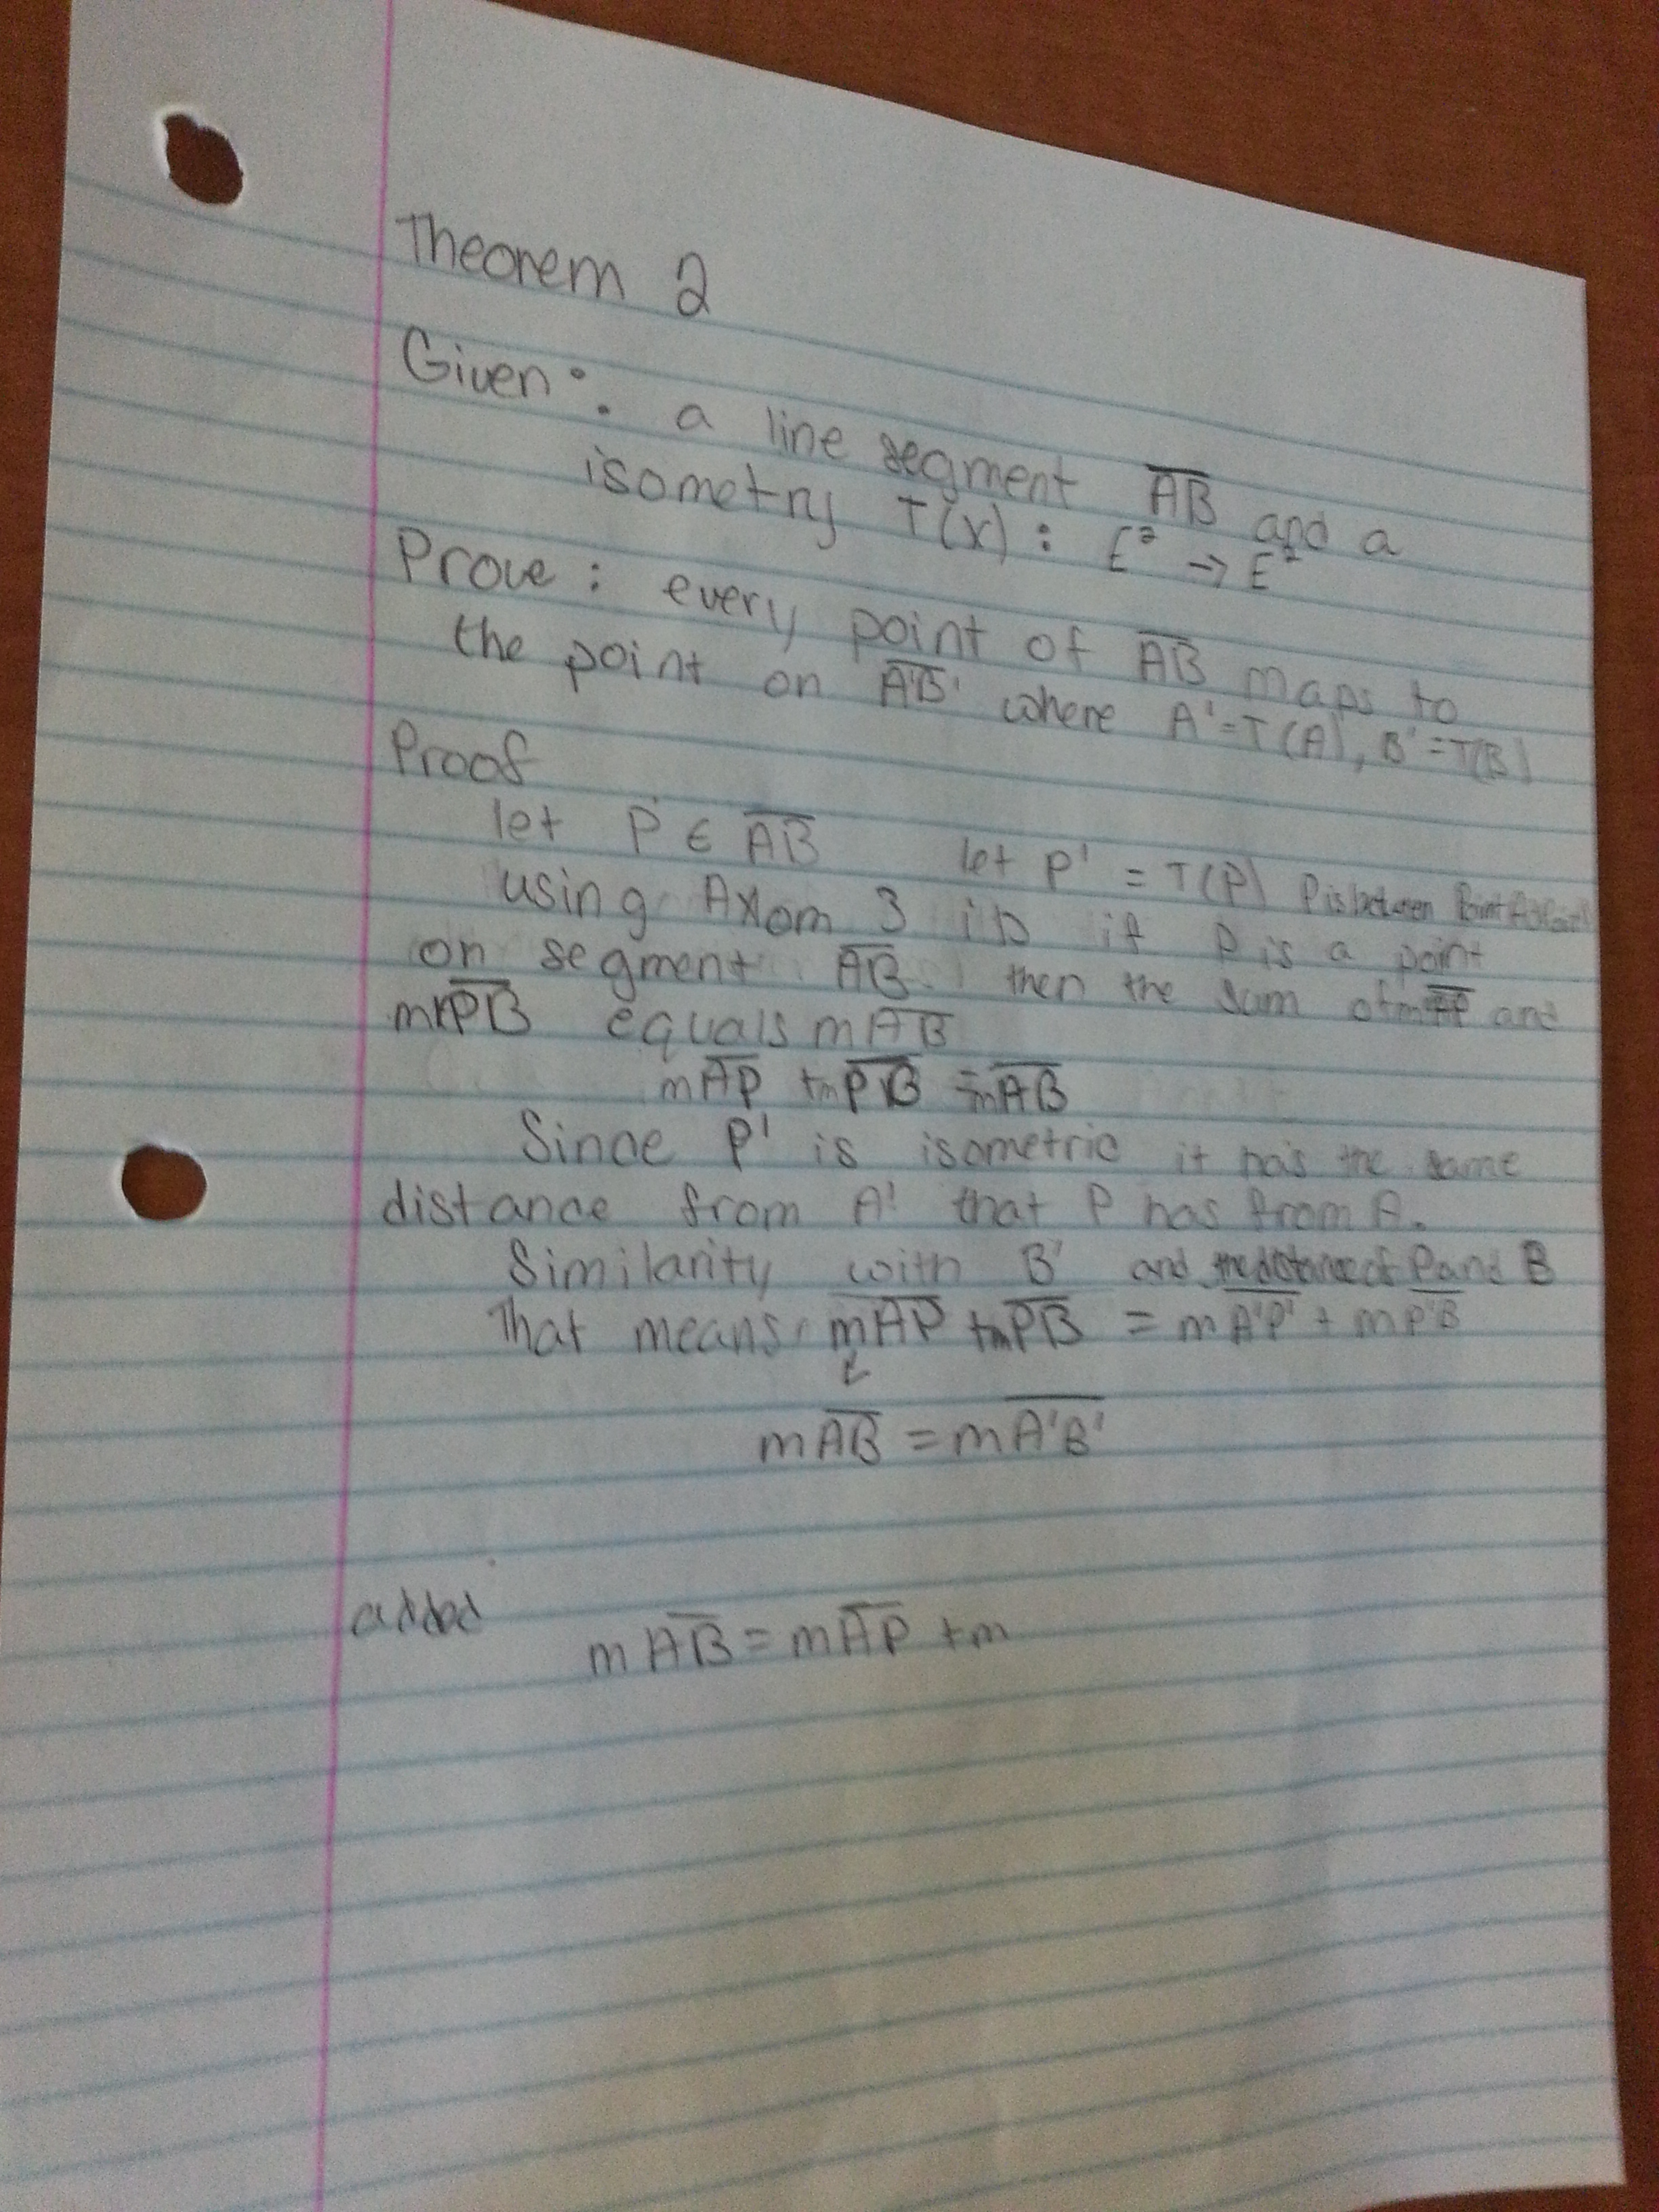 Theorem 2
Given: a line segment A̅B̅ and a
isometry T(x): E² → E²
Prove: every point of A̅B̅ maps to
the point on A̅'B̅' where A'=T(A), B'=T(B)
Proof
let P ∈ A̅B̅ let P' = T(P) P is between Point A
using Axiom 3 if P is a point
on segment A̅B̅ then the sum of mA̅P̅ and
mP̅B̅ equals mA̅B̅
mA̅P̅ + mP̅B̅ = mA̅B̅
Since P' is isometric it has the same
distance from A' that P has from A.
Similarity with B' and the distance of P and B
That means mA̅P̅ + mP̅B̅ = mA̅'P̅' + mP̅'B̅
mA̅B̅ = mA̅'B̅'
added mA̅B̅ = mA̅P̅ + m